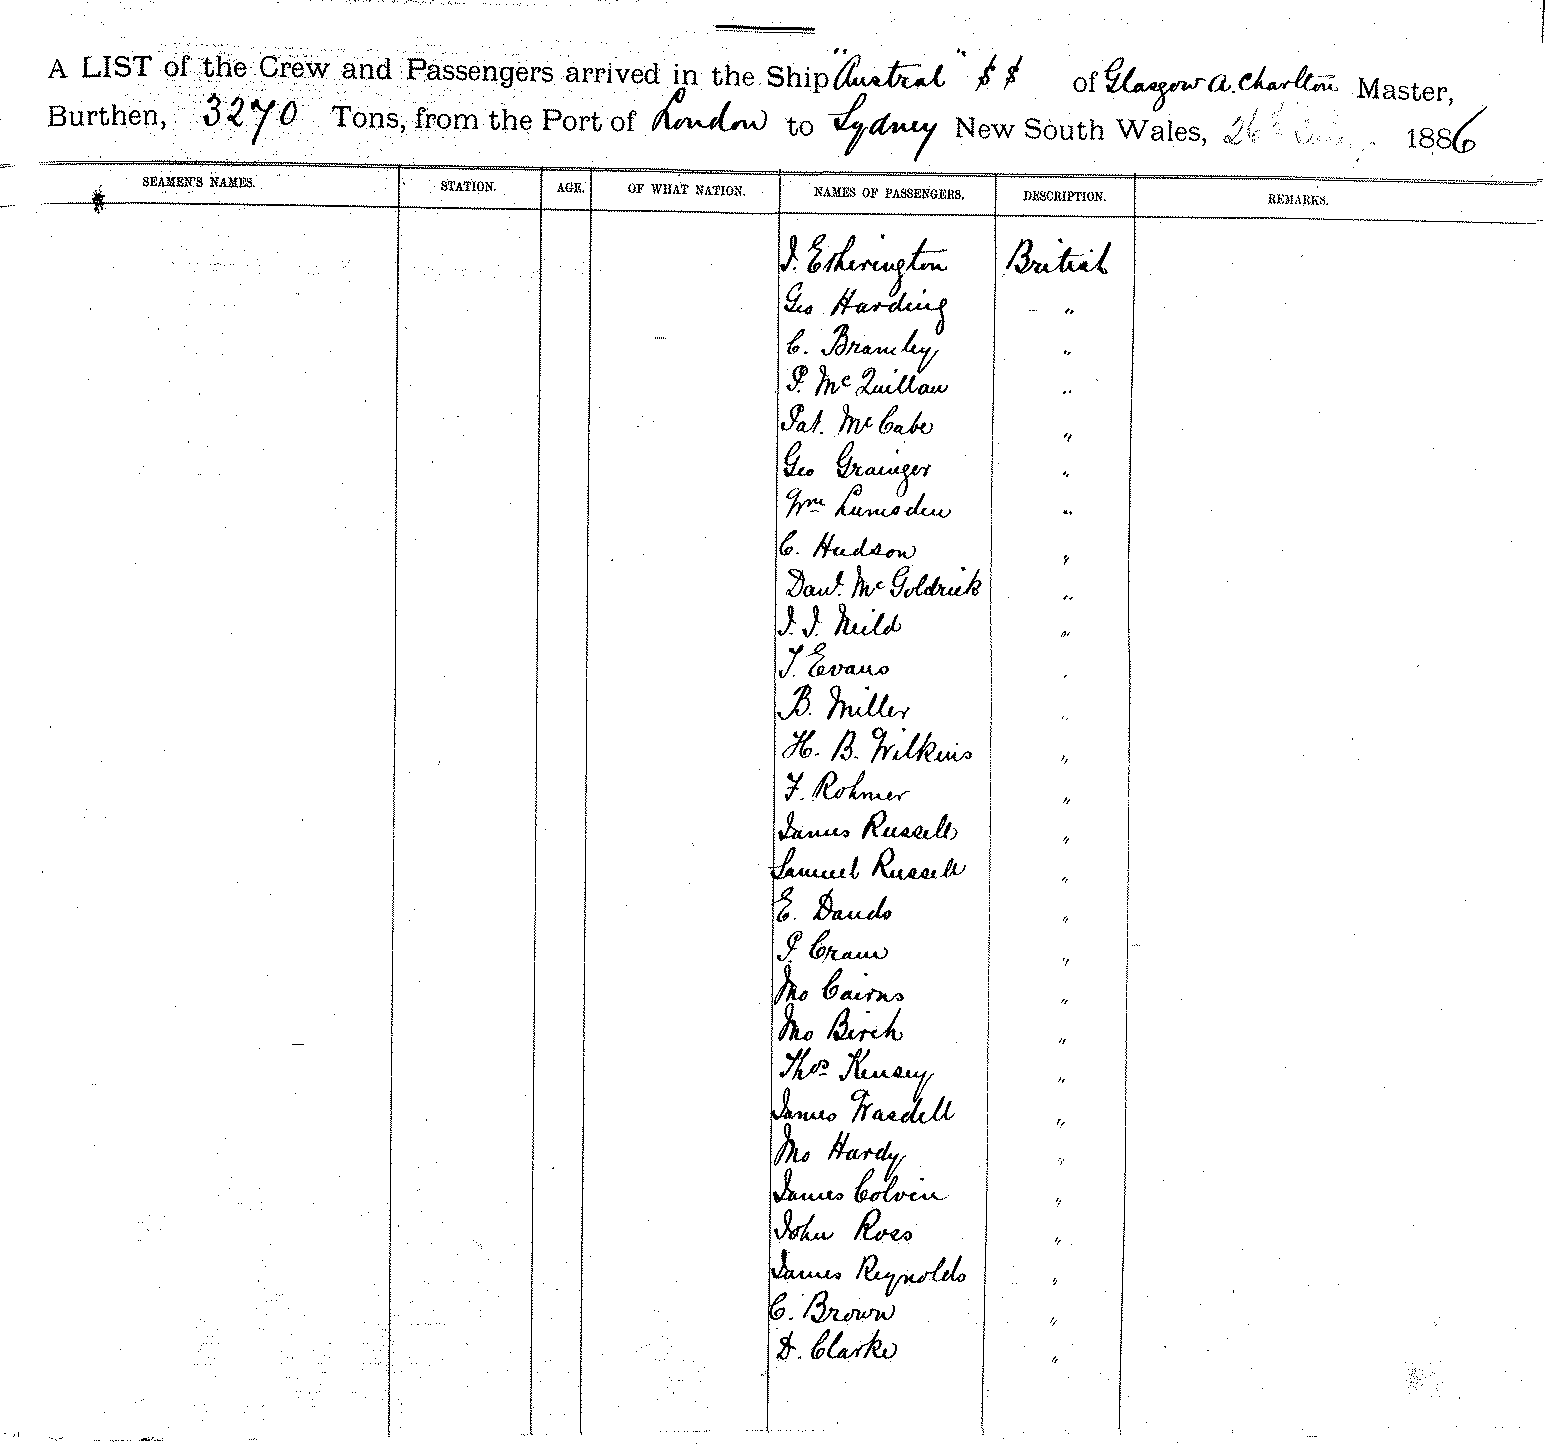 A LIST of the Crew and Passengers arrived in the Ship "Austral" SS of Glasgow A. Charlton Master,
Burthen, 3270 Tons, from the Port of London to Sydney New South Wales, 26th 1886
SEAMEN'S NAMES. STATION. AGE. OF WHAT NATION. NAMES OF PASSENGERS. DESCRIPTION. REMARKS.
J. Etherington British
Geo Harding "
C. Bramley "
P. McQuillan "
Pat. McCabe "
Geo Grainger "
Wm Lumsden "
C. Hudson "
Danl. McGoldrick "
J. J. Neild "
T. Evans "
B. Miller "
H. B. Wilkins "
F. Rohmer "
James Russell "
Samuel Russell "
E. Dando "
P. Cram "
Mo Cairns "
Mo Birch "
Thos Kensey "
James Wasdell "
Mo Hardy "
James Colvin "
John Ross "
James Reynolds "
C. Brown "
D. Clarke "